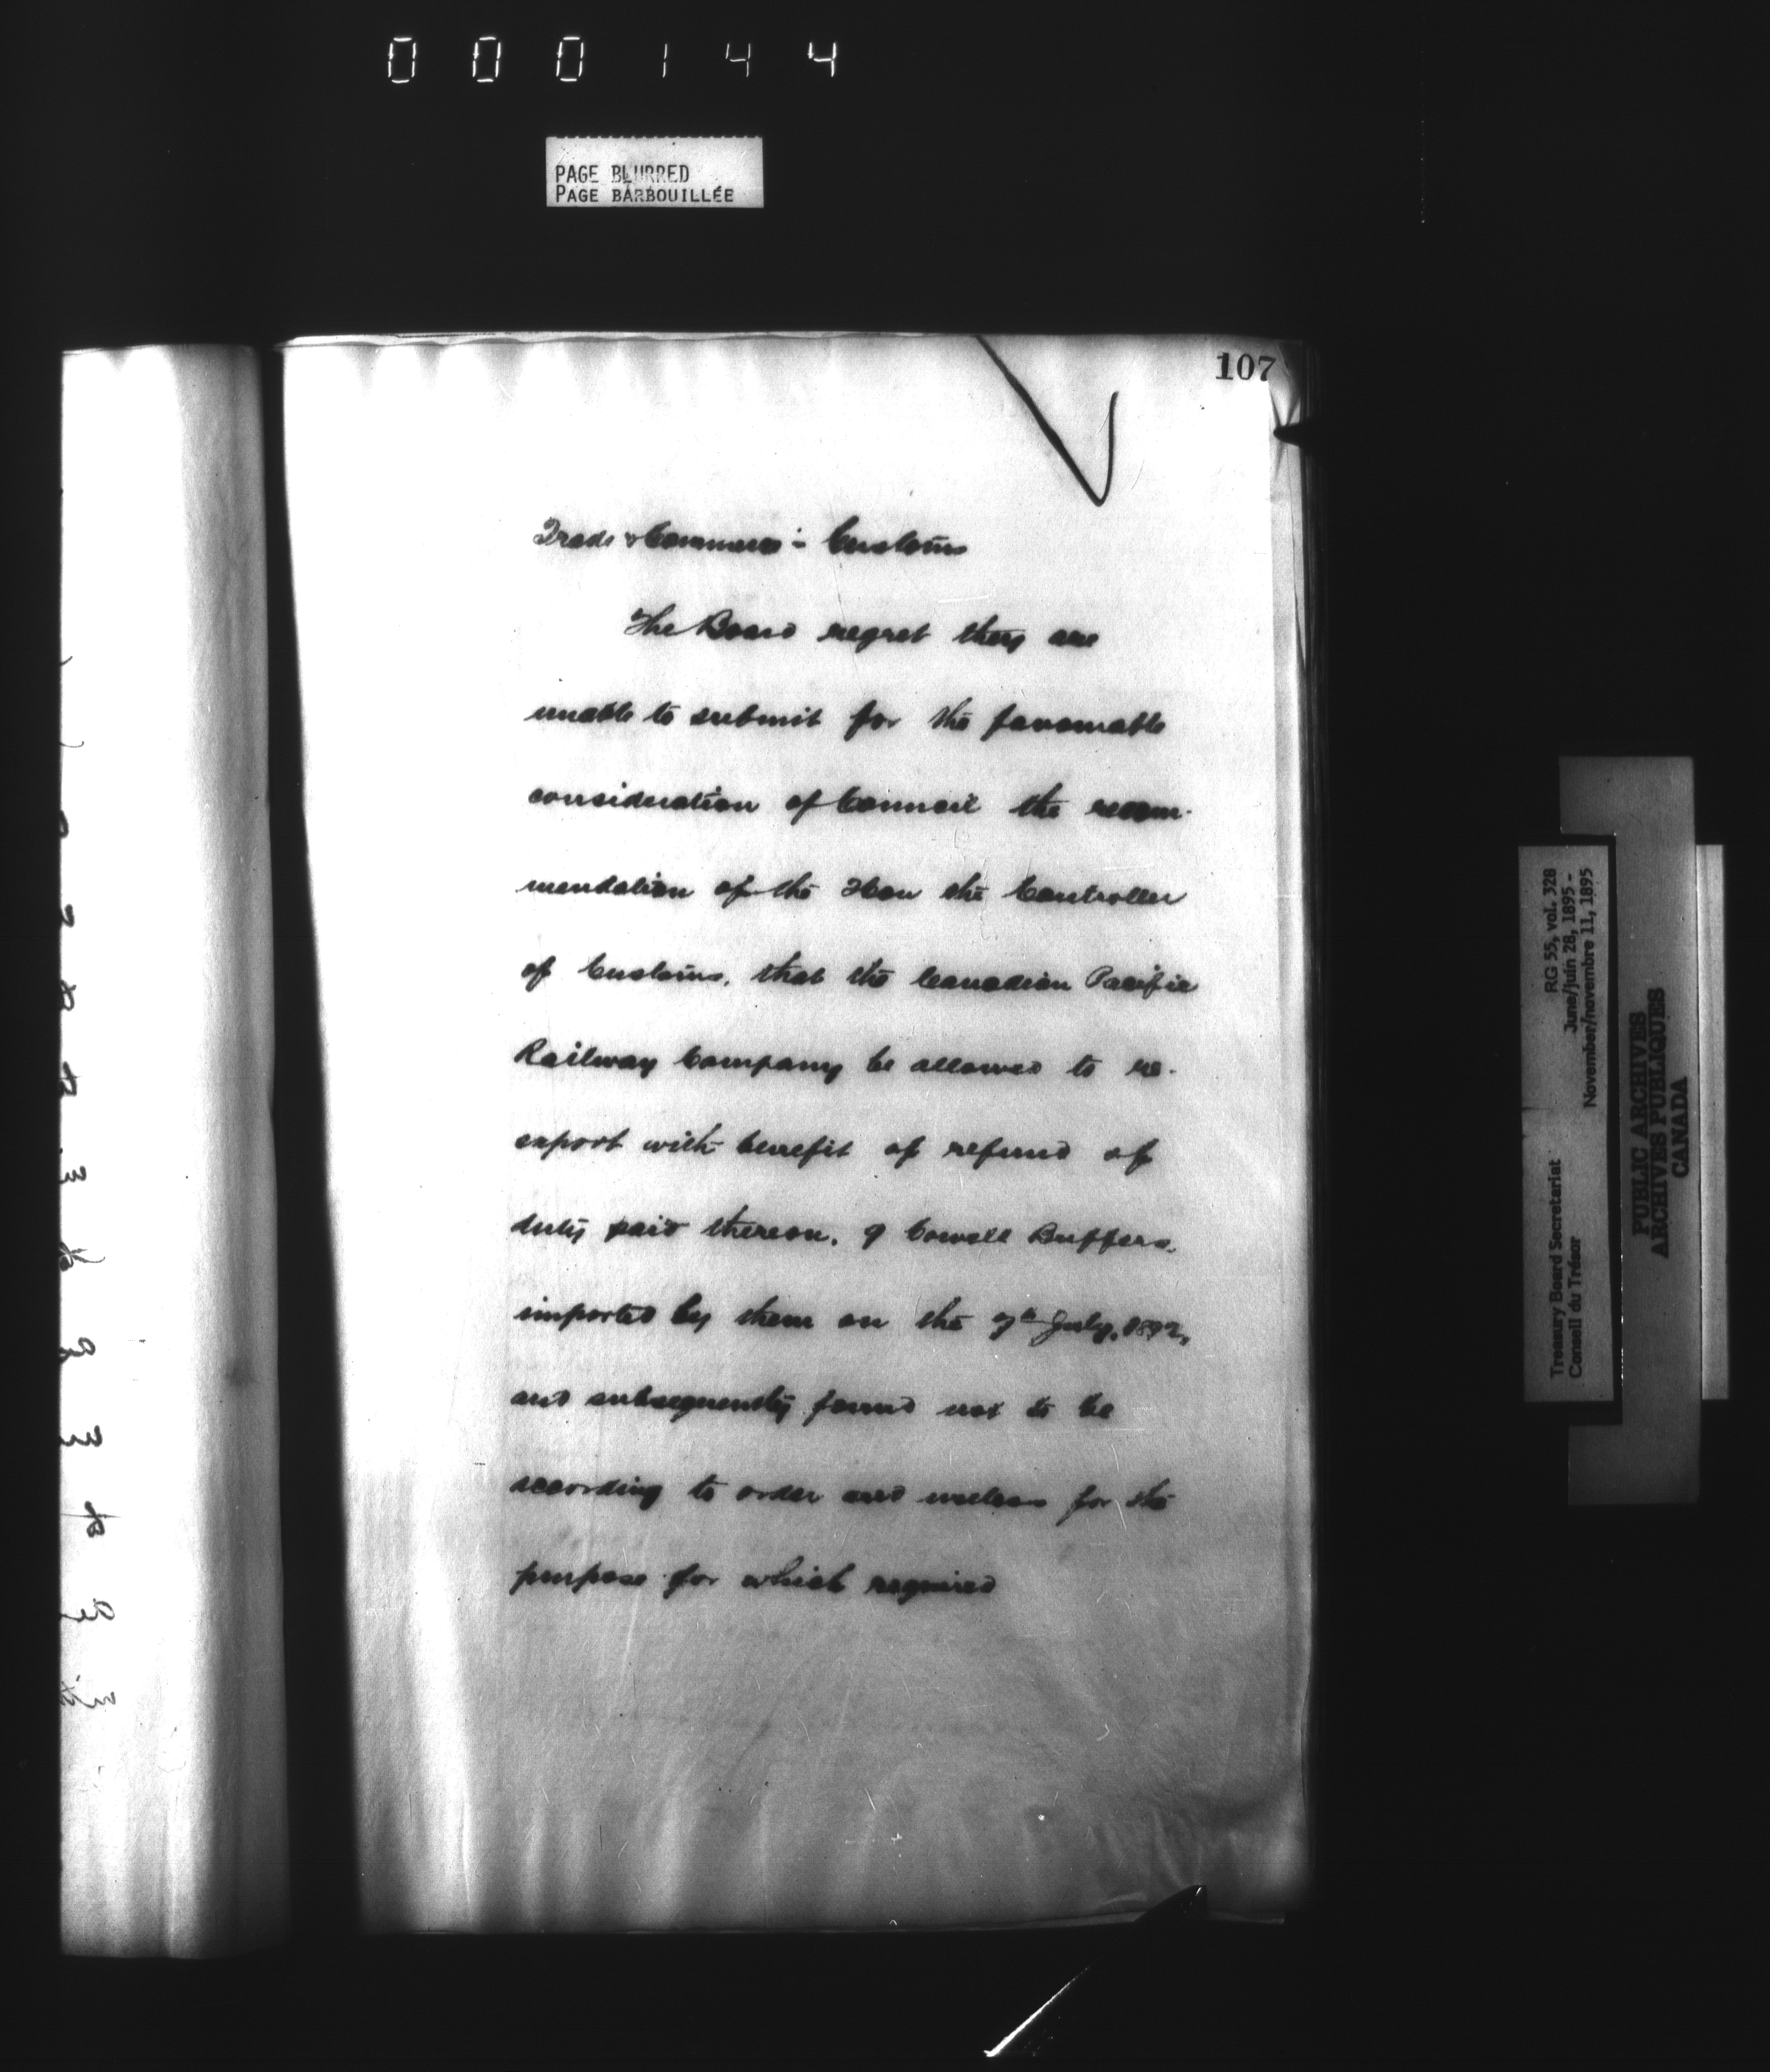 000144
PAGE BLURRED
PAGE BARBOUILLÉE
107
Trade & Commerce - Customs
The Board regret they are
unable to submit for the favourable
consideration of Council the recom-
mendation of the Hon the Controller
of Customs, that the Canadian Pacific
Railway Company be allowed to re-
export with benefit of refund of
duty paid thereon, 9 Cowell Buffers,
imported by them on the 7th July, 1892,
and subsequently found not to be
according to order and useless for the
purpose for which required
Treasury Board Secretariat RG 55, vol. 328
Conseil du Trésor June/juin 28, 1895 -
November/novembre 11, 1895
PUBLIC ARCHIVES
ARCHIVES PUBLIQUES
CANADA